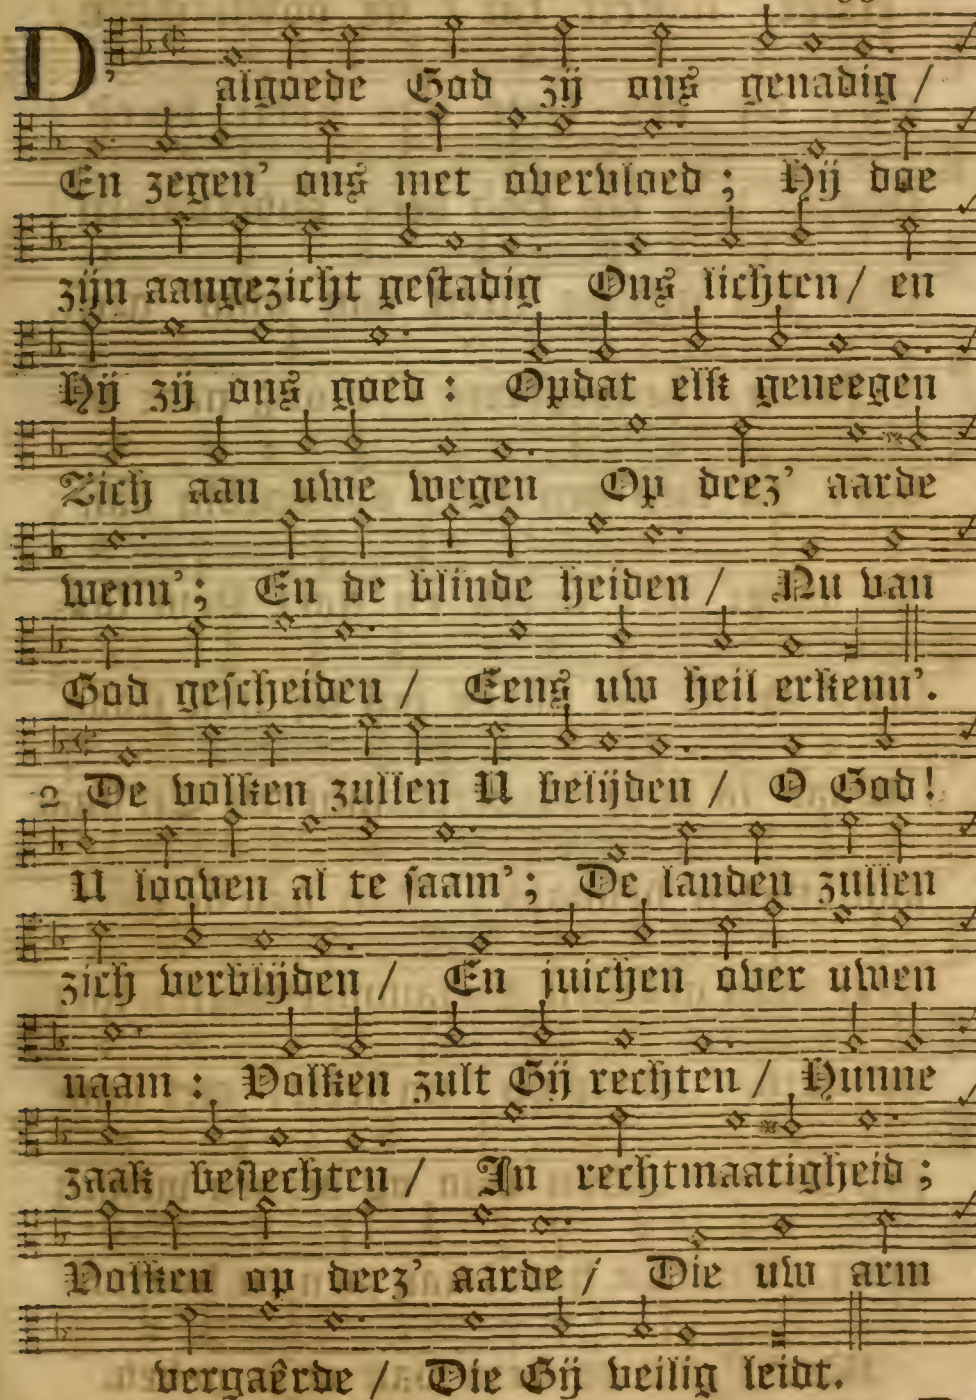 D' algoede God zij ons genadig /
En zegen' ons met overvloed ; Hij doe
zijn aangezicht gestadig Ons lichten / en
Hij zij ons goed : Opdat elk geneegen
Zich aan uwe wegen Op deez' aarde
wenn' ; En de blinde heiden / Nu van
God gescheiden / Eens uw heil erkenn'.
2 De volken zullen U belijden / O God!
U looven al te saam' ; De landen zullen
zich verblijden / En juichen over uwen
naam : Volken zult Gij rechten / Hunne
zaak beslechten / In rechtmaatigheid ;
Volken op deez' aarde / Die uw arm
vergaêrde / Die Gij veilig leidt.